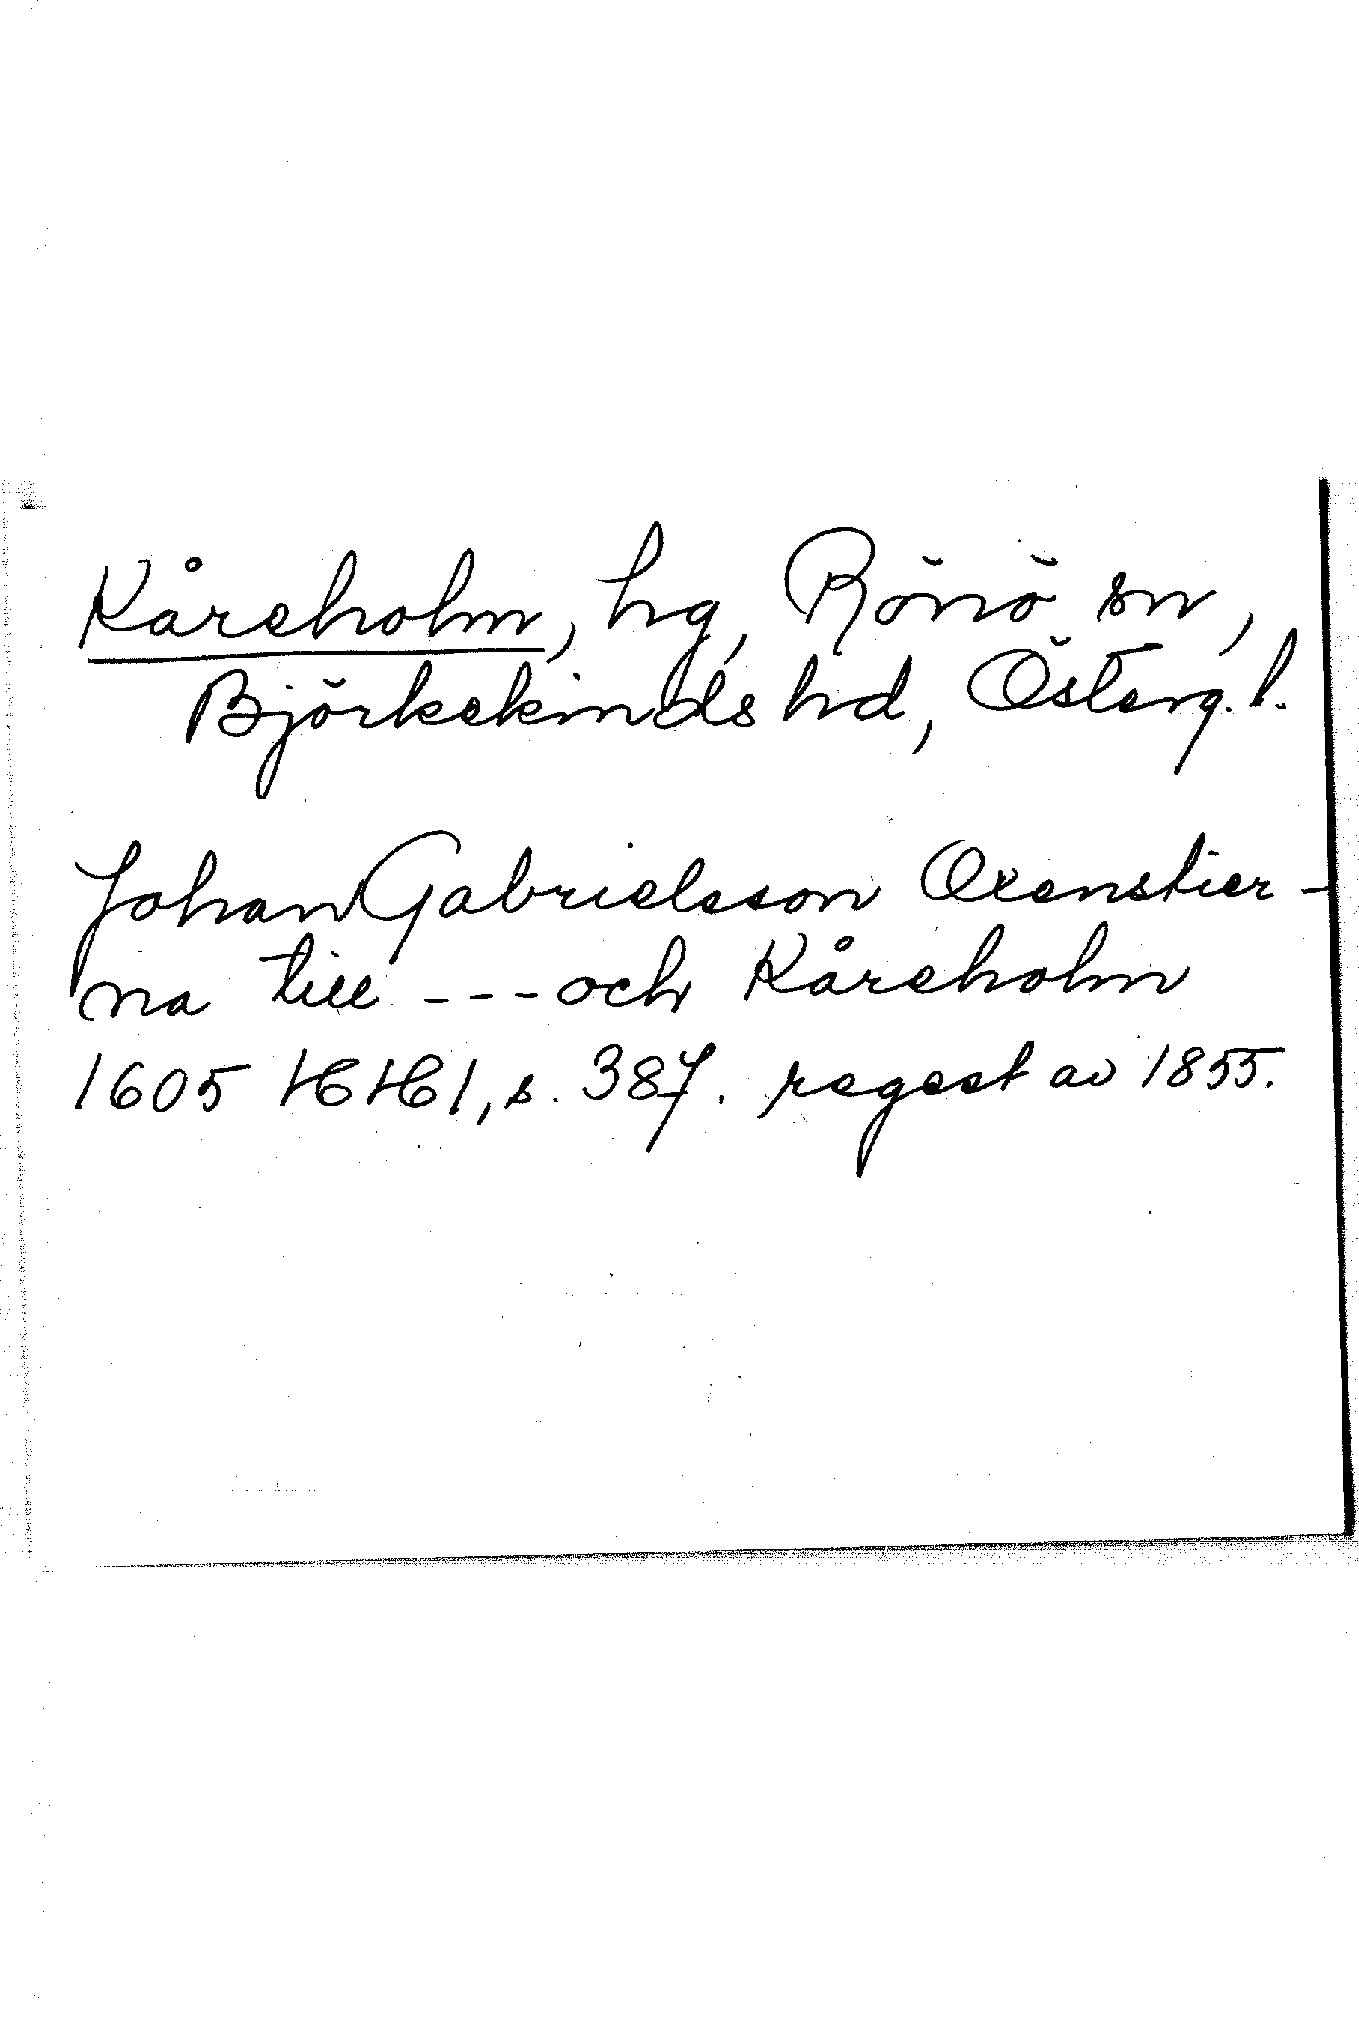 Kåreholm, hg, Rönö sn,
Björkekinds hd, Österg. l.
Johan Gabrielsson Oxenstier-
na till --- och Kåreholm
1605 HH1, s. 387. regest av 1855.